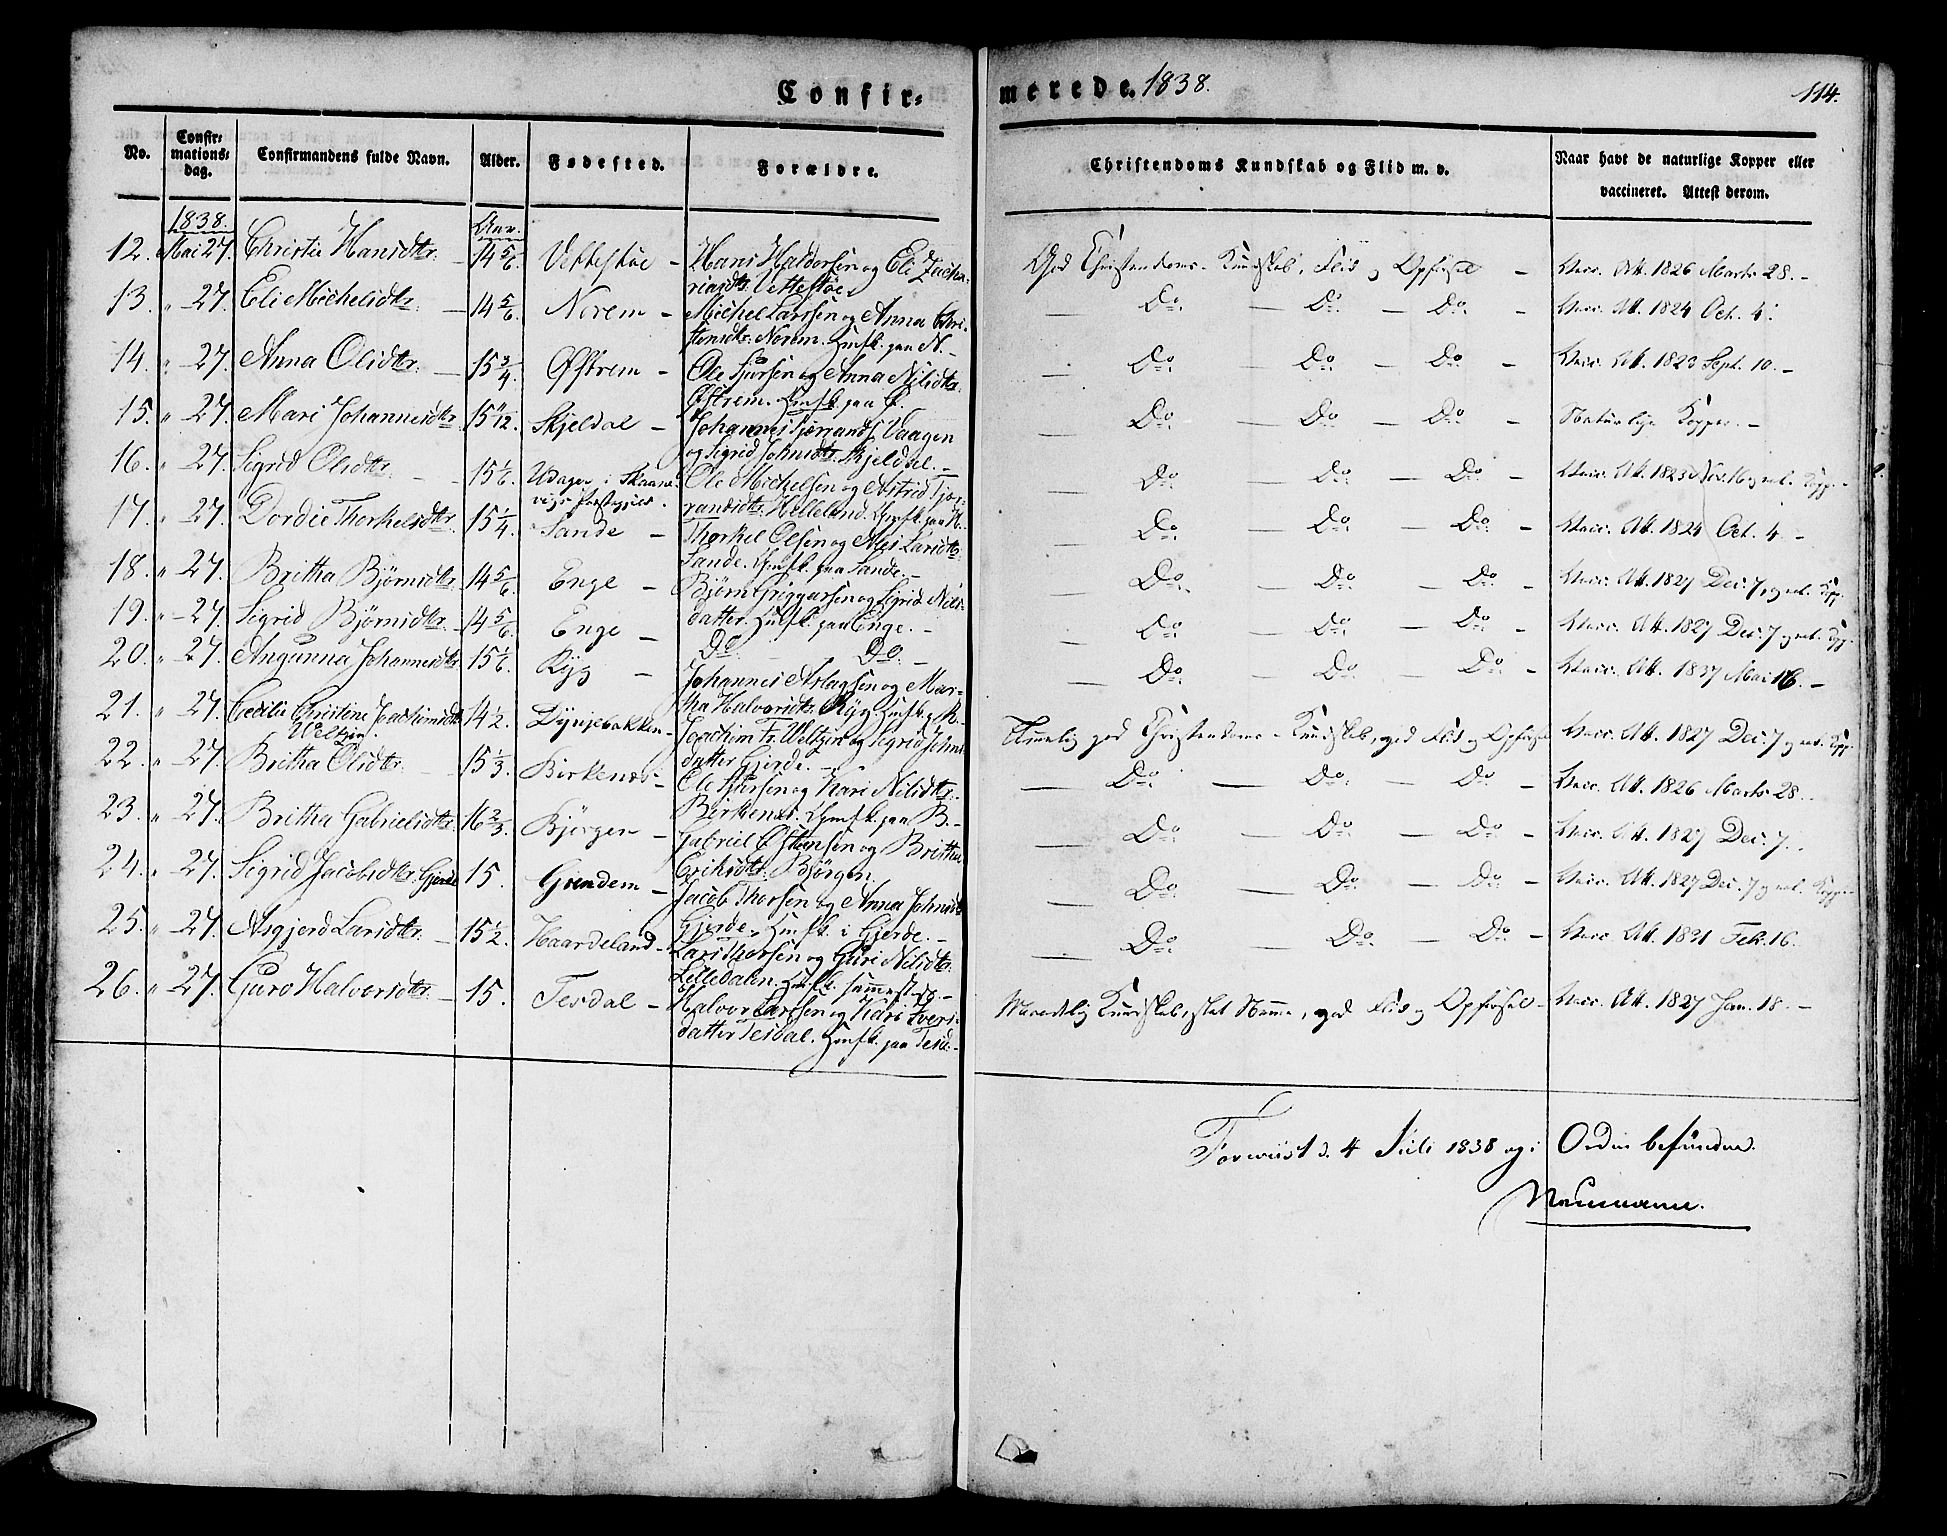 Confir=
merede. 1838.
114.
No.
Confir=
mations=
dag.
Confirmandens fulde Navn.
Alder.
Fødested.
Forældre.
Christendoms Kundskab og Flid m. v.
Naar havt de naturlige Kopper eller
vaccineret. Attest derom.
1838.
Aar.
12. Mai 27. Christie Hansdtr. 14 5/6. Vettestøe - Hans Haldorsen og Eli Zacha-
riasdtr. Vettestøe.
God Christendoms-Kundskab, Flid og Opførsel - Vacc. Att. 1826 Marts 28. -
13. " 27. Eli Michelsdtr. 14 5/6. Norem - Michel Larssen og Anna Chri-
stensdtr. Norem. Huusf. paa N. -
Do. Do. Do. Vacc. Att. 1824 Oct. 4.
14. " 27. Anna Olsdtr. 15 3/4. Østrem - Ole Sjursen og Anna Nilsdtr.
Østrem. Huusf. paa Ø.
Do. Do. Do. - Vacc. Att. 1823 Sept. 10. -
15. " 27. Mari Johannesdtr. 15 11/12. Skjeldal - Johannes Vaagen
og Sigrid Johnsdtr. Skjeldal. -
Do. Do. Do. - Naturlige Kopper. -
16. " 27. Sigrid Olsdtr. 15 1/6. i Skaane-
vigs Præstegjeld. Ole Michelsen og Astrid Tjer-
randsdtr. Helleland. Huusf. paa H.
Do. Do. Do. - Vacc. Att. 1823
17. " 27. Dordie Thorkelsdtr. 15 1/4. Sande - Thorkel Olsen og Ales Larsdtr.
Sande. Huusf. paa Sande. -
Do. Do. Do. - Vacc. Att. 1824 Oct. 4. -
18. " 27. Britha Bjørnsdtr. 14 5/6. Enge - Bjørn Griggarsen og Sigrid Nils-
datter. Huusf. paa Enge. -
Do. Do. Do. - Vacc. Att. 1827 Dec. 7
19. " 27. Sigrid Bjørnsdtr. 14 5/6. Enge - Do. Do. -
Do. Do. Do. - Vacc. Att. 1827 Dec. 7
20. " 27. Angunna Johannesdtr. 15 1/6. Ryg - Johannes Aslagsen og Mar-
tha Halvorsdtr. Ryg Huusf. p. R. -
Do. Do. Do. - Vacc. Att. 1837 Mai 16. -
21. " 27. Cecilie Christine Joachimsdtr.
Weltzin. 14 1/2. Dynjebakken - Joachim Fr. Weltzin og Sigrid Johns-
datter Gjerde. -
Temmelig god Christendoms-Kundskab, god Flid og Opførsel Vacc. Att. 1827 Dec. 7
22. " 27. Britha Olsdtr. 15 1/3. Birkenes - Ole Sjursen og Kari Nilsdtr.
Birkenes. Huusf. paa B. -
Do. Do. Do. - Vacc. Att. 1826 Marts 28.
23. " 27. Britha Gabrielsdtr. 16 2/3. Bjørgen - Gabriel Østensen og Britha
Eriksdtr. Bjørgen.
Do. Do. Do. - Vacc. Att. 1827 Dec. 7.
24. " 27. Sigrid Jacobsdtr. Gjerde 15. Grindem - Jacob Thorsen og Anna Johnsdtr.
Gjerde. Huusf. i Gjerde. -
Do. Do. Do. - Vacc. Att. 1827 Dec. 7
25. " 27. Asgjerd Larsdtr. 15 1/2. Haardeland - Lars Thorsen og Guri Nilsdtr.
Lilledalen. Huusf. sammesteds -
Do. Do. Do. - Vacc. Att. 1831 Feb. 16.
26. " 27. Guro Halvorsdtr. 15. Tesdal - Halvor Larssen og Kari Ivers-
datter Tesdal. Huusf. paa Tesd. -
Maadelig Kundskab, slet Nemme, god Flid og Opførsel - Vacc. Att. 1827 Jan. 18. -
Foreviist d. 4 Juli 1838 og i Orden befunden.
Neumann.